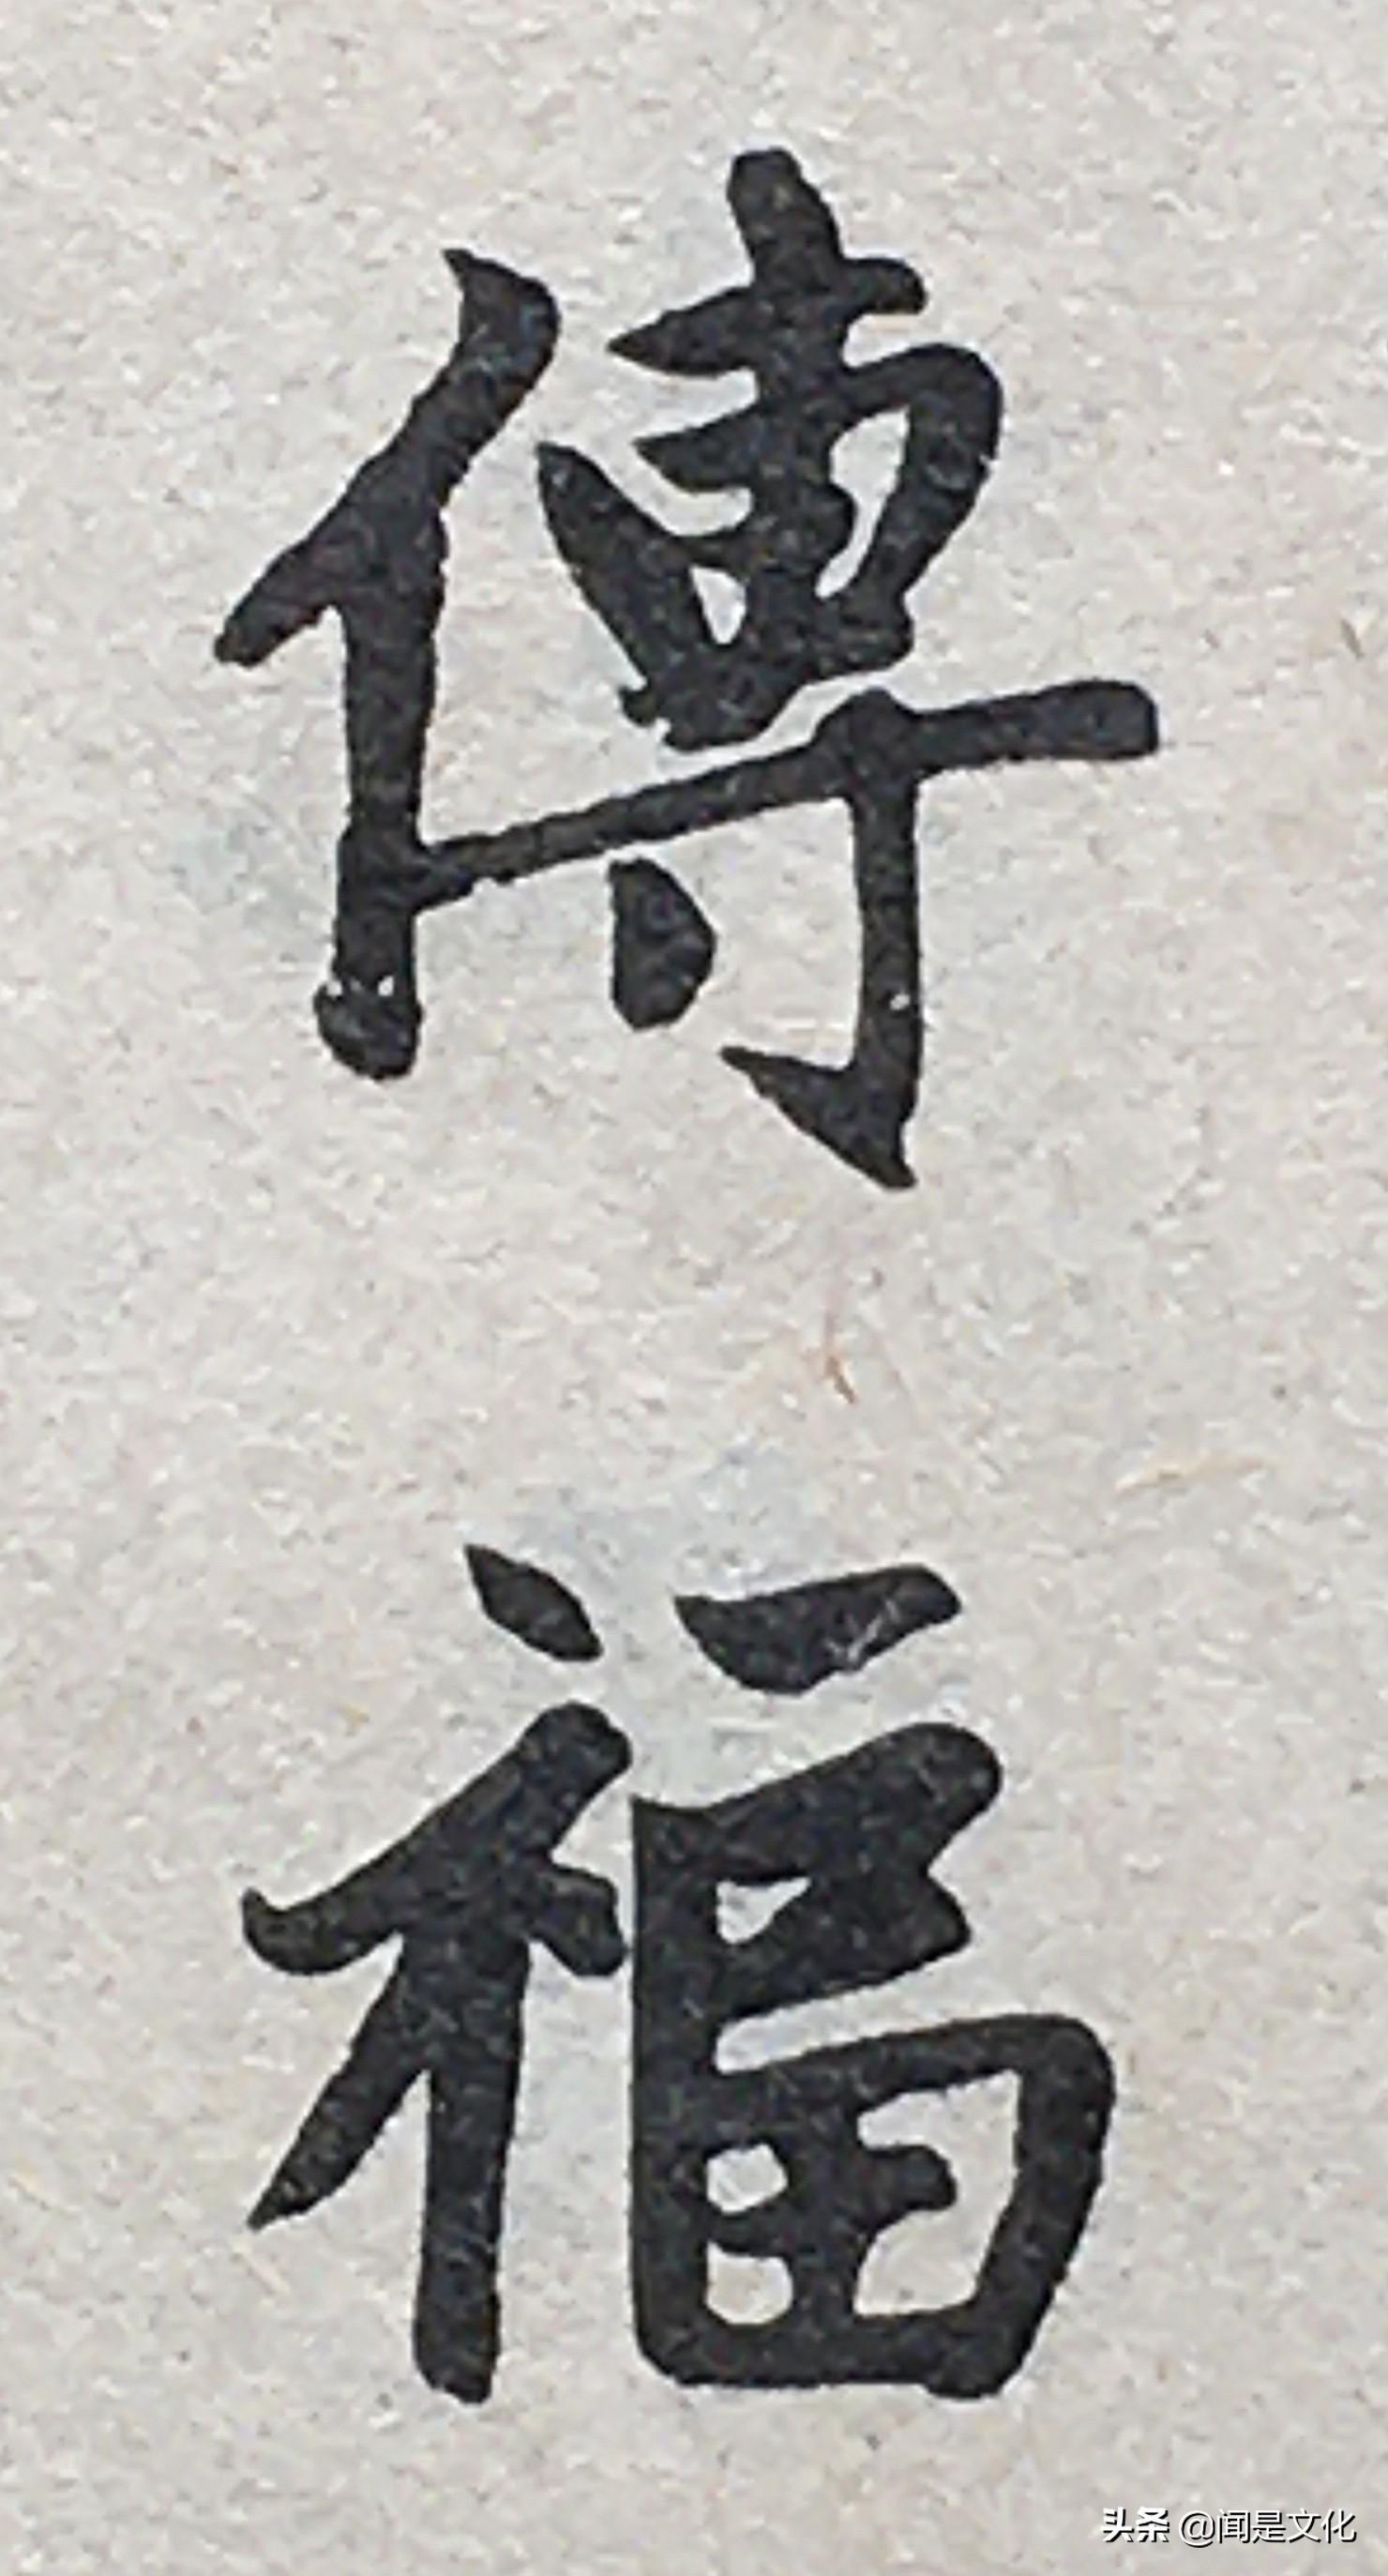 傳
福
头条 @闻是文化